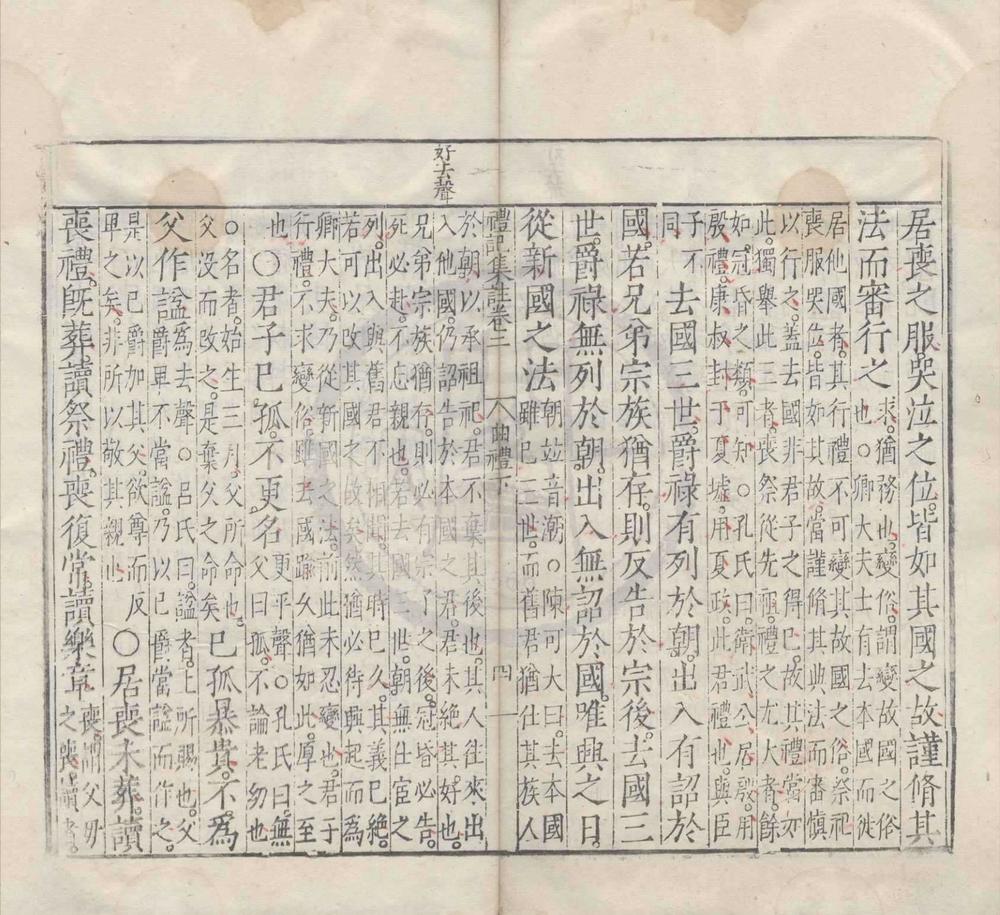 好去聲
居喪之服哭泣之位皆如其國之故謹脩其
法而審行之
求猶務也變俗謂變故國之俗
也○卿大夫士有去本國而徙
居他國者其行禮不可變其故國之俗祭祀
喪服哭位皆如其故當謹脩其典法而審慎
以行之蓋去國非君子之得已故其禮當如
此獨舉此三者喪祭從先祖禮之尤大者餘
如冠昏之類可知○孔氏曰衛武公居殷用
殷禮康叔封于夏墟用夏政此君禮也與臣
子不
同
去國三世爵祿有列於朝出入有詔於
國若兄弟宗族猶存則反告於宗後去國三
世爵祿無列於朝出入無詔於國唯興之日
從新國之法
朝竝音潮○陳可大曰去本國
雖已三世而舊君猶仕其族人
禮記集註卷二 曲禮下 四
於朝以承祖祀君不棄其後也其人往來出
入他國仍詔告於本國之君君未絕其好也
兄弟宗族猶存則必有宗子之後冠昏必告
死必赴不忘親也若去國三世朝無仕宦之
列出入與舊君不相聞其時已久其義已絕
若可以改其國之故矣然猶必待興起而為
卿大夫乃從新國之法前此未忍變也君子
行禮不求變俗雖去國踰久猶如此厚之至
也
○君子已孤不更名
更平聲○孔氏曰無
父曰孤不論老幼也
○名者始生三月父所命也
父没而改之是棄父之命矣
已孤暴貴不為
父作諡
為去聲○呂氏曰諡者上所賜也父
爵卑不當諡乃以已爵當諡而作之
是以已爵加其父欲尊而反
卑之矣非所以敬其親也
○居喪未葬讀
喪禮既葬讀祭禮喪復常讀樂章
喪謂父母
之喪讀者